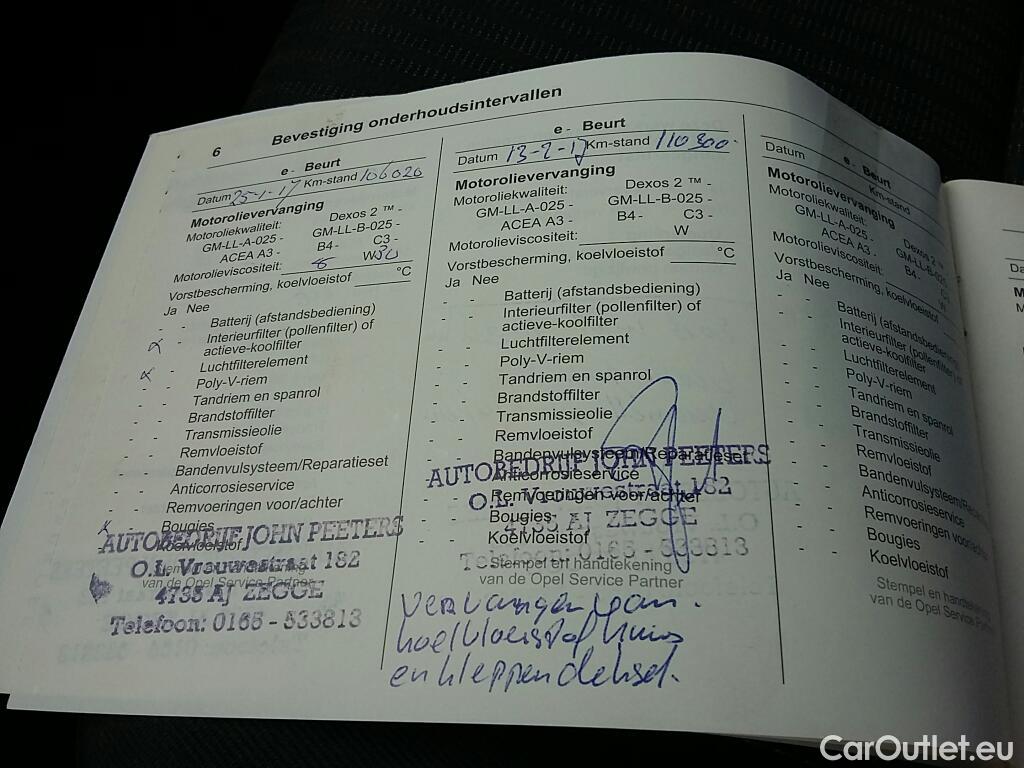 6 Bevestiging onderhoudsintervallen
e - Beurt
Datum 25-1-17 Km-stand 106020
Motorolievervanging
Motoroliekwaliteit: Dexos 2 ™ -
GM-LL-A-025 - GM-LL-B-025 -
ACEA A3 - B4 - C3 -
Motorolieviscositeit: W30
Vorstbescherming, koelvloeistof °C
Ja Nee
- - Batterij (afstandsbediening)
- - Interieurfilter (pollenfilter) of
actieve-koolfilter
- - Luchtfilterelement
- - Poly-V-riem
- - Tandriem en spanrol
- - Brandstoffilter
- - Transmissieolie
- - Remvloeistof
- - Bandenvulsysteem/Reparatieset
- - Anticorrosieservice
- - Remvoeringen voor/achter
- Bougies
Koelvloeistof
Stempel en handtekening
van de Opel Service Partner
AUTOBEDRIJF JOHN PEETERS
O.L. Vrouwestraat 182
4735 AJ ZEGGE
Telefoon: 0165 - 533813
e - Beurt
Datum 13-2-17 Km-stand 110300
Motorolievervanging
Motoroliekwaliteit: Dexos 2 ™ -
GM-LL-A-025 - GM-LL-B-025 -
ACEA A3 - B4 - C3 -
Motorolieviscositeit: W
Vorstbescherming, koelvloeistof °C
Ja Nee
- - Batterij (afstandsbediening)
- - Interieurfilter (pollenfilter) of
actieve-koolfilter
- - Luchtfilterelement
- - Poly-V-riem
- - Tandriem en spanrol
- - Brandstoffilter
- - Transmissieolie
- - Remvloeistof
- - Bandenvulsysteem/Reparatieset
Anticorrosieservice
- - Remvoeringen voor/achter
- - Bougies
- - Koelvloeistof
Stempel en handtekening
van de Opel Service Partner
AUTOBEDRIJF JOHN PEETERS
O.L. Vrouwestraat 182
4735 AJ ZEGGE
Telefoon: 0165 - 533813
vervangen van
koelvloeistof huis
en kleppendeksel.
e - Beurt
Datum Km-stand
Motorolievervanging
Motoroliekwaliteit: Dexos 2
GM-LL-A-025 - GM-LL-B-025
ACEA A3 - B4 -
Motorolieviscositeit: W
Vorstbescherming, koelvloeistof
Ja Nee
- - Batterij (afstandsbediening)
- - Interieurfilter (pollenfilter) of
actieve-koolfilter
- - Luchtfilterelement
- - Poly-V-riem
- - Tandriem en spanrol
- - Brandstoffilter
- - Transmissieolie
- - Remvloeistof
- - Bandenvulsysteem/Reparatieset
- - Anticorrosieservice
- - Remvoeringen voor/achter
- - Bougies
- - Koelvloeistof
Stempel en handtekening
van de Opel Service Partner
CarOutlet.eu